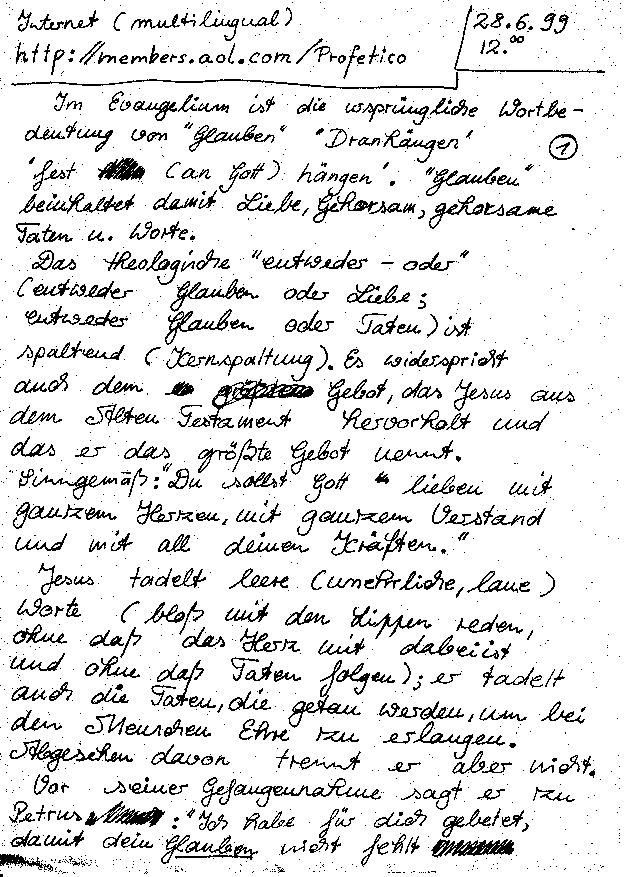 Internet (multilingual)
http://members.aol.com/Profetico
28.6.99
12.00
Im Evangelium ist die ursprüngliche Wortbe-
deutung von "Glauben" 'Dranhängen'
①
'fest (an Gott) hängen'. "Glauben"
beinhaltet damit Liebe, Gehorsam, gehorsame
Taten u. Worte.
Das theologische "entweder - oder"
(entweder Glauben oder Liebe;
entweder Glauben oder Taten) ist
spaltend (Kernspaltung). Es widerspricht
auch dem Gebot, das Jesus aus
dem Alten Testament hervorholt und
das er das größte Gebot nennt.
Sinngemäß: "Du sollst Gott lieben mit
ganzem Herzen, mit ganzem Verstand
und mit all deinen Kräften."
Jesus tadelt leere (unehrliche, laue)
Worte (bloß mit den Lippen reden,
ohne daß das Herz mit dabei ist
und ohne daß Taten folgen); er tadelt
auch die Taten, die getan werden, um bei
den Menschen Ehre zu erlangen.
Abgesehen davon trennt er aber nicht.
Vor seiner Gefangennahme sagt er zu
Petrus : "Ich habe für dich gebetet,
damit dein Glauben nicht fehlt